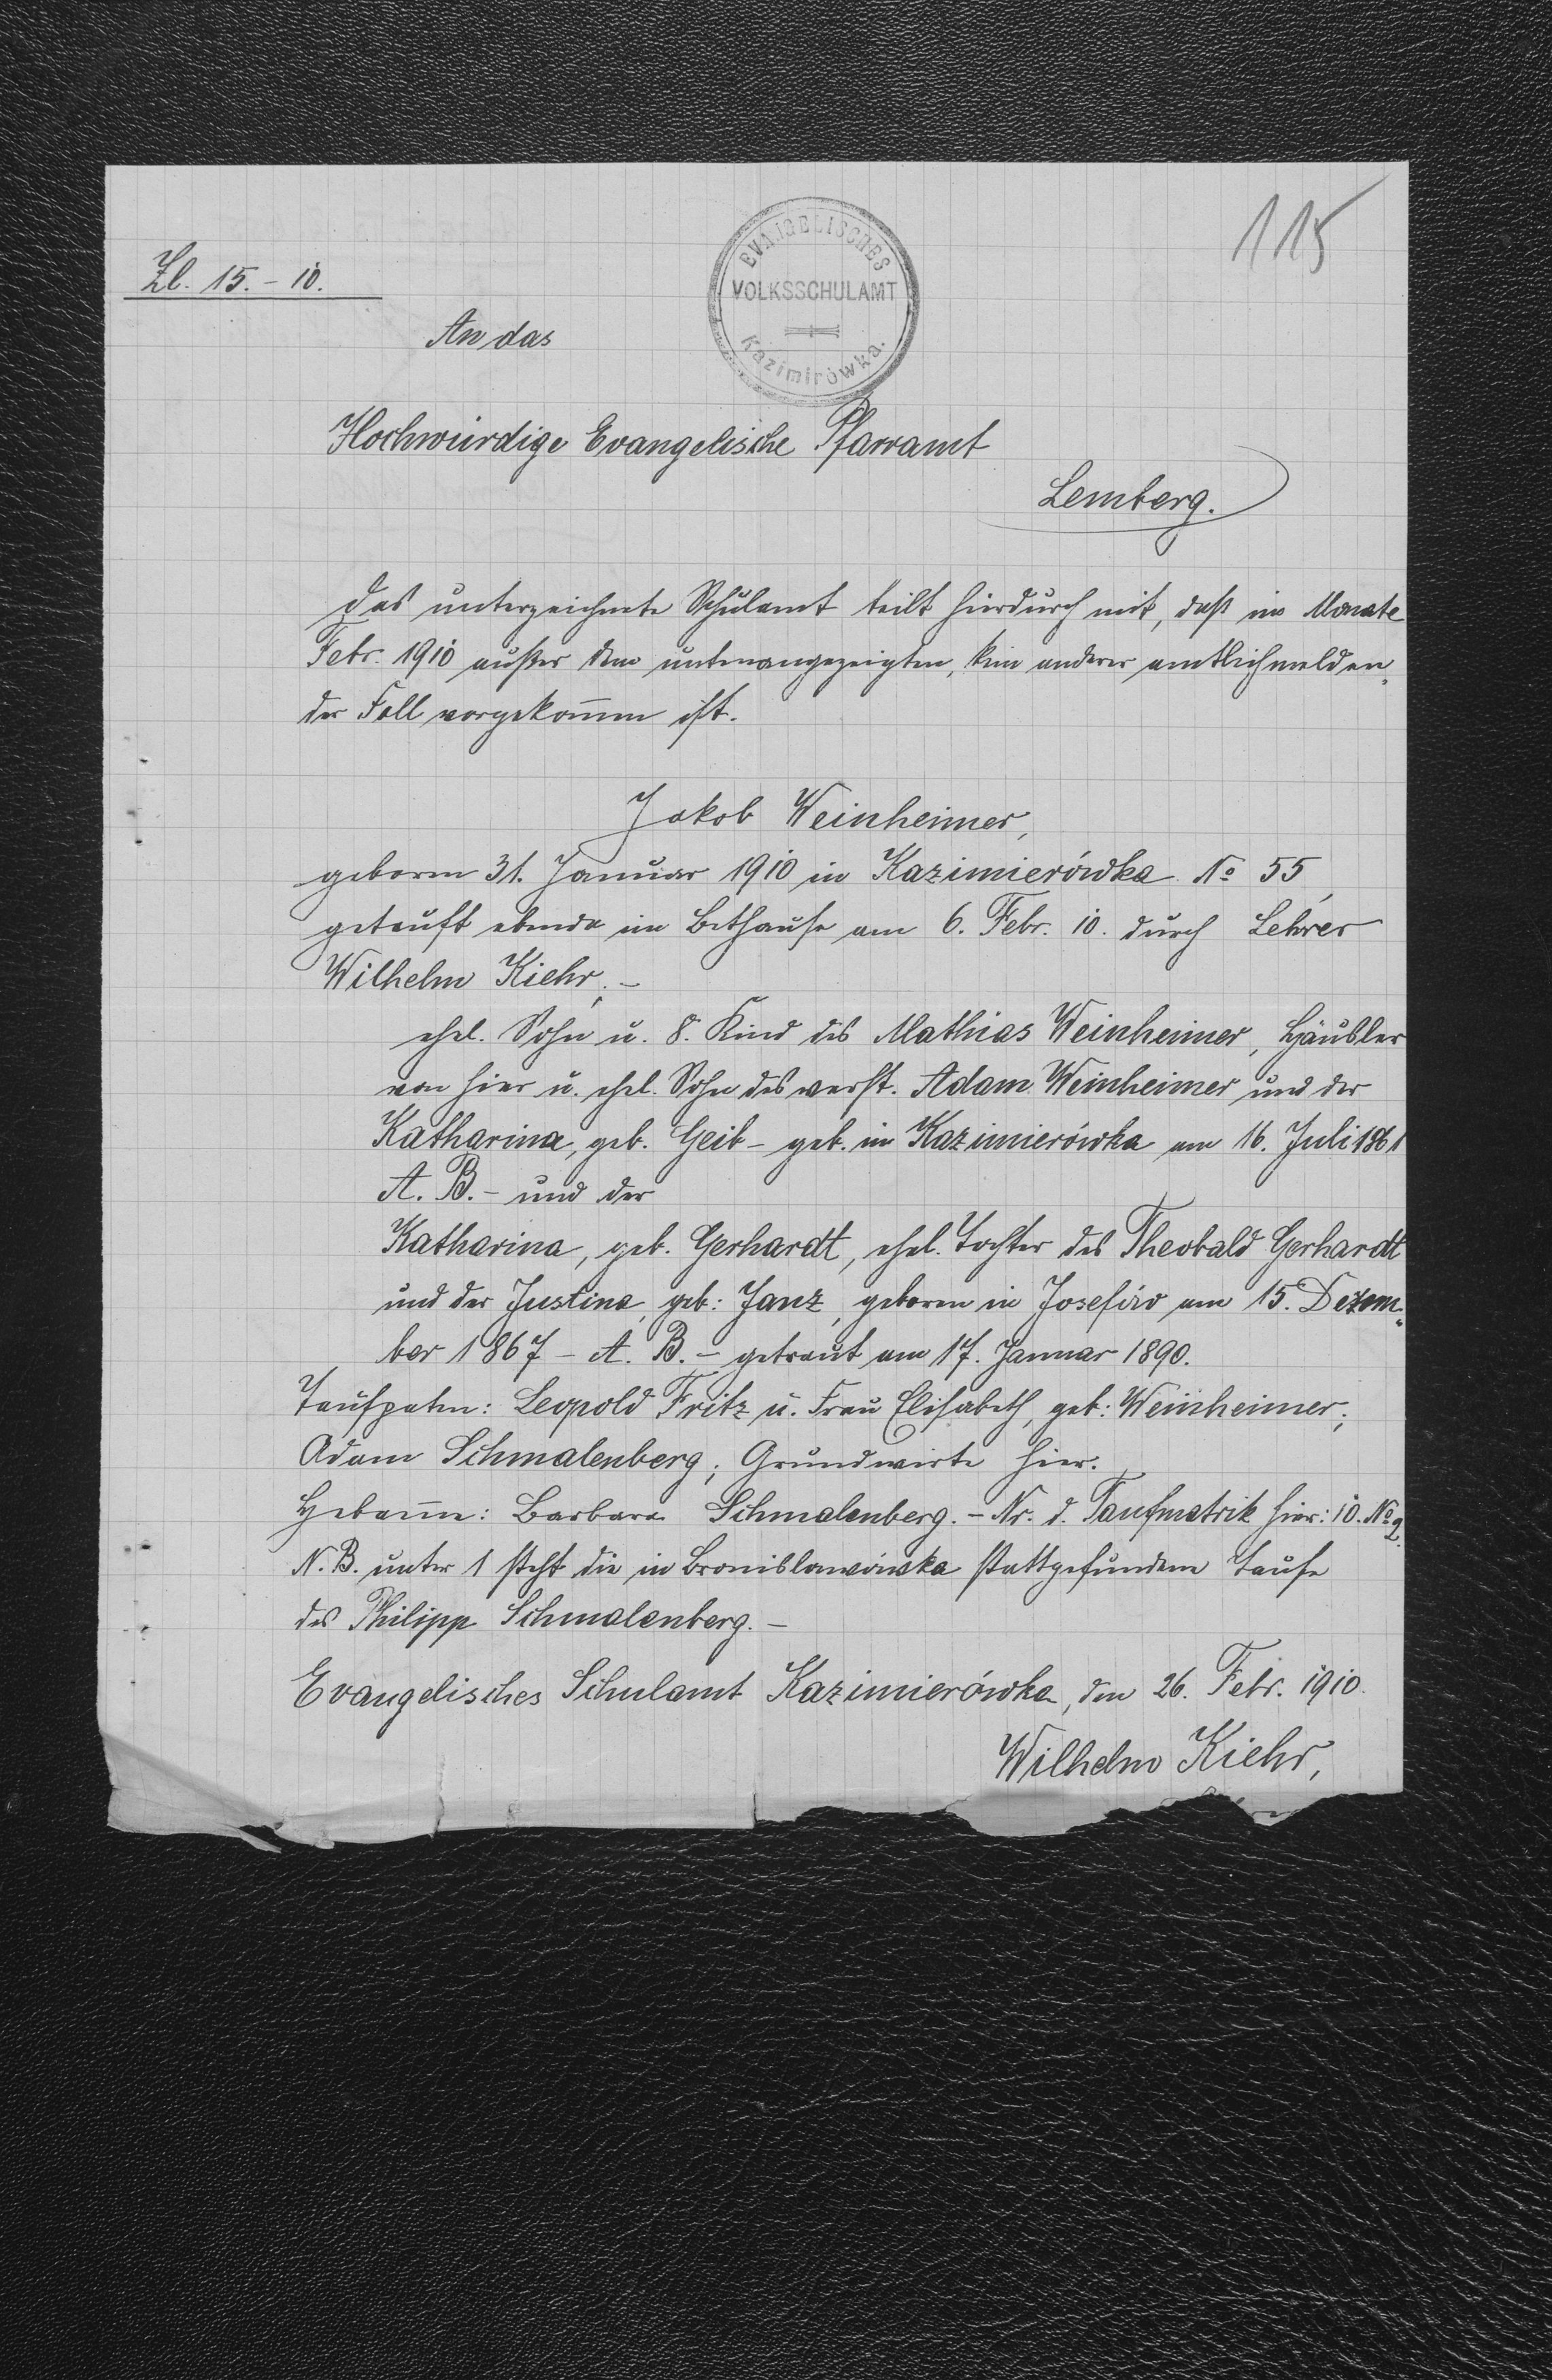 115
EVANGELISCHES
VOLKSSCHULAMT
Kazimirówka.
Zl. 15. - 10.
An das
Hochwürdige Evangelische Pfarramt
Lemberg.
Das unterzeichnete Schulamt teilt hierdurch mit, daß im Monate
Febr. 1910 außer dem untenangezeigten, kein anderer amtlichmelden„
der Fall vorgekom̅en ist.
Jakob Weinheimer,
geboren 31. Januar 1910 in Kazimierówka No 55,
getauft ebenda im Bethause am 6. Febr. 10. durch Lehrer
Wilhelm Kiehr. -
ehel. Sohn u. 8. Kind des Mathias Weinheimer, Häusler
von hier u. ehel. Sohn des verst. Adam Weinheimer und der
Katharina, geb. Geib - geb. in Kazimierówka am 16. Juli 1861
A. B. - und der
Katharina, geb. Gerhardt, ehel. Tochter des Theobald Gerhardt
und der Justina, geb: Janz, geboren in Josefów am 15. Dezem„
ber 1867 - A. B. - getraut am 17. Januar 1890.
Taufpaten: Leopold Fritz u. Frau Elisabeth, geb: Weinheimer;
Adam Schmalenberg; Grundwirte hier.
Hebam̅e: Barbara Schmalenberg. - Nr. d. Taufmatrik hier: 10. No 2.
N. B. unter 1 steht die in Bronislawówka stattgefundene Taufe
des Philipp Schmalenberg. -
Evangelisches Schulamt Kazimierówka, den 26. Febr. 1910.
Wilhelm Kiehr,